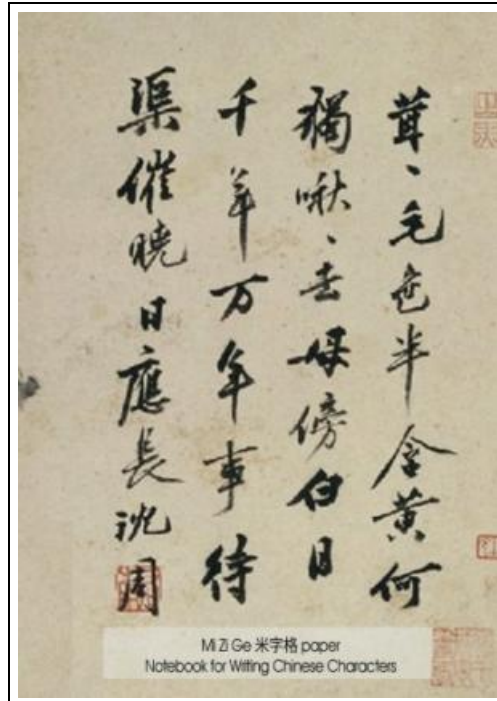 茸、毛色半含黄何
獨啾、去母傍白日
千年万年事待
渠催曉日應長沈周
Mi Zi Ge 米字格 paper
Notebook for Writing Chinese Characters